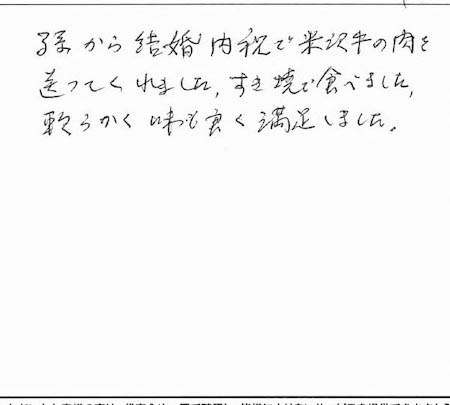 孫から結婚内税で米沢牛の肉を
送ってくれました、すき焼で食べました、
軟らかく味も良く満足しました。